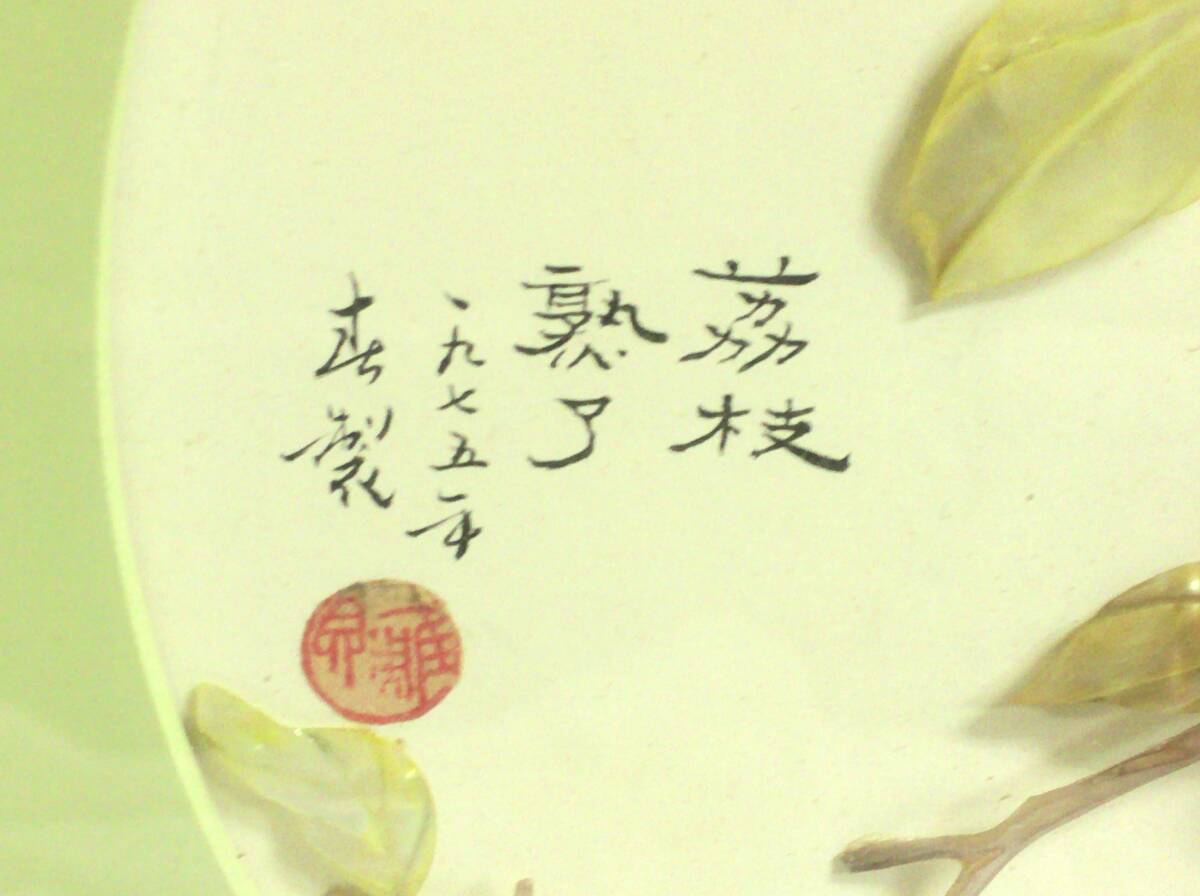 荔枝
熟了
一九七五年
春製